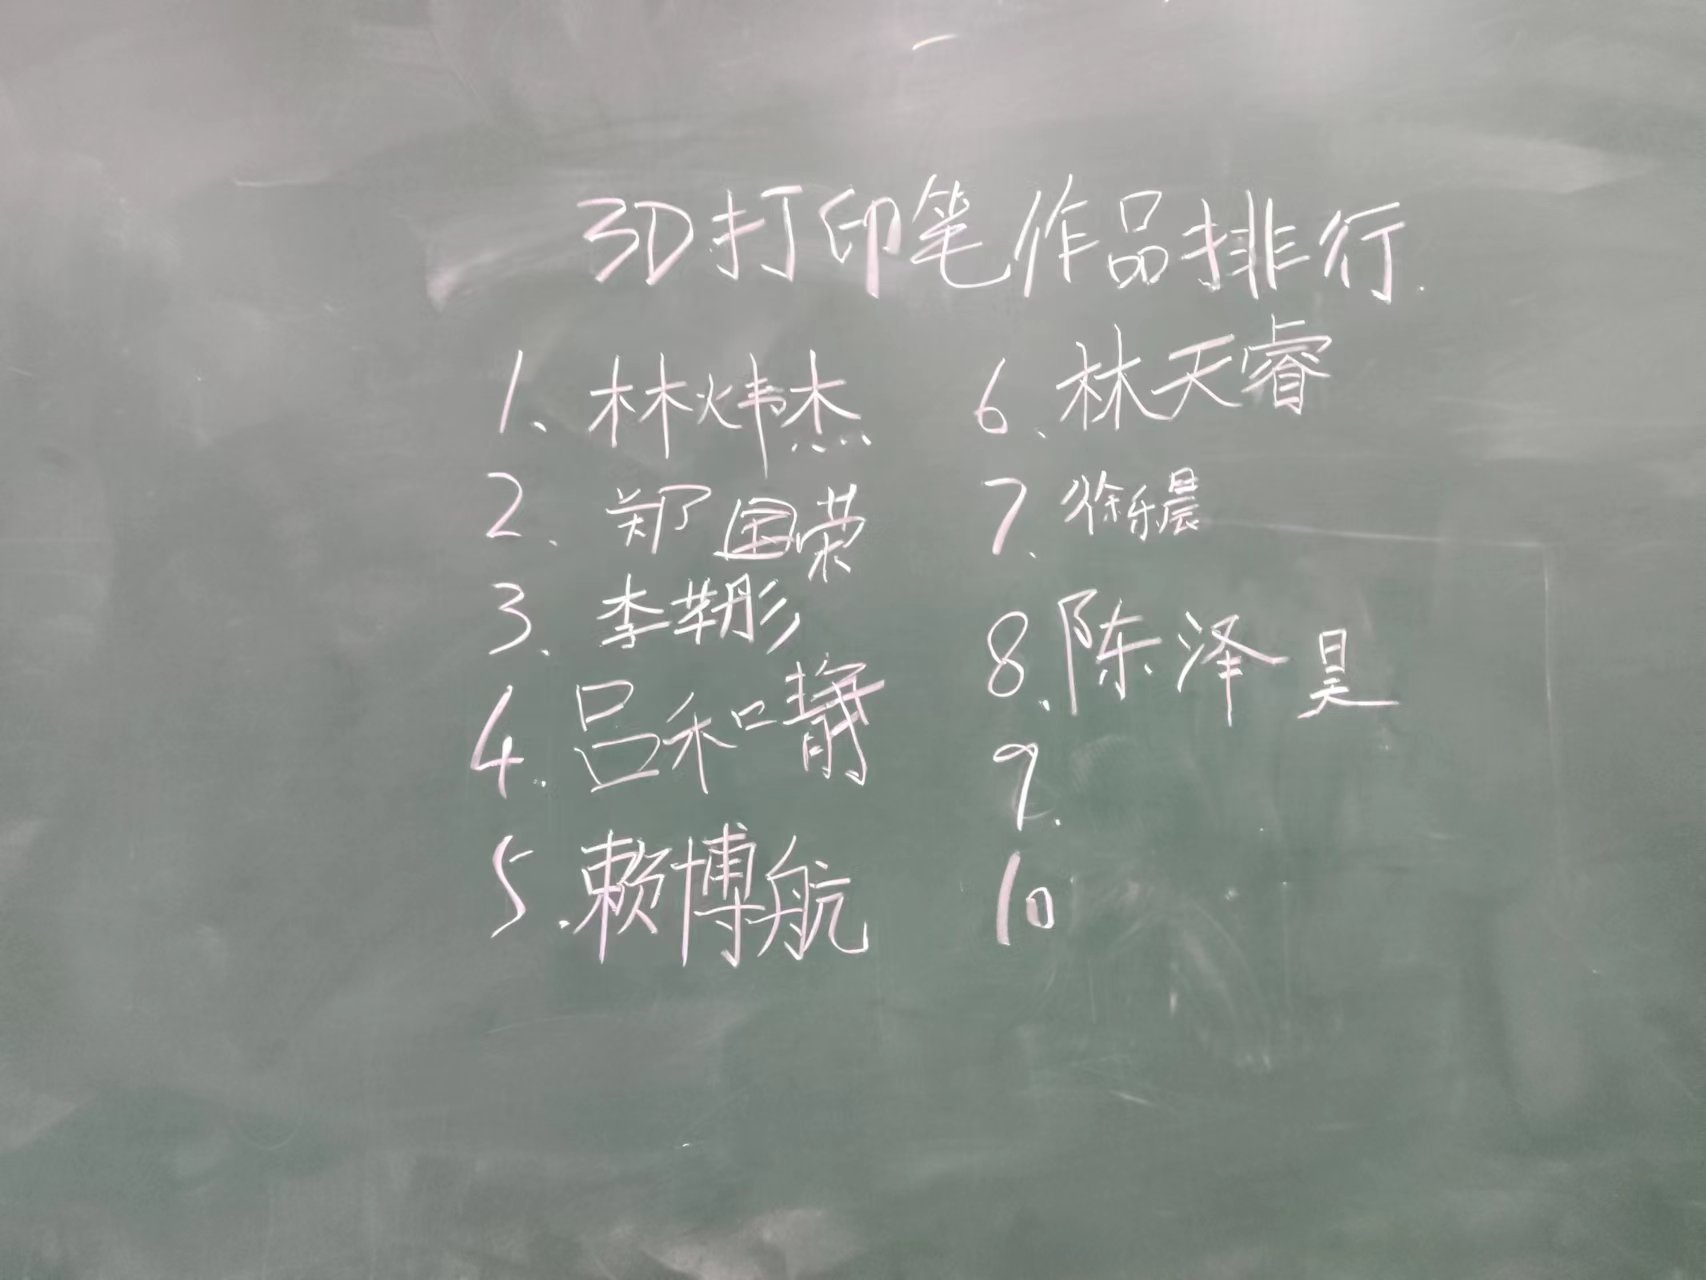 3D打印笔作品排行.
1、林炜杰
2、郑国荣
3、李莘彤
4、吕和静
5、赖博航
6、林天睿
7、徐乐晨
8、陈泽昊
9、
10